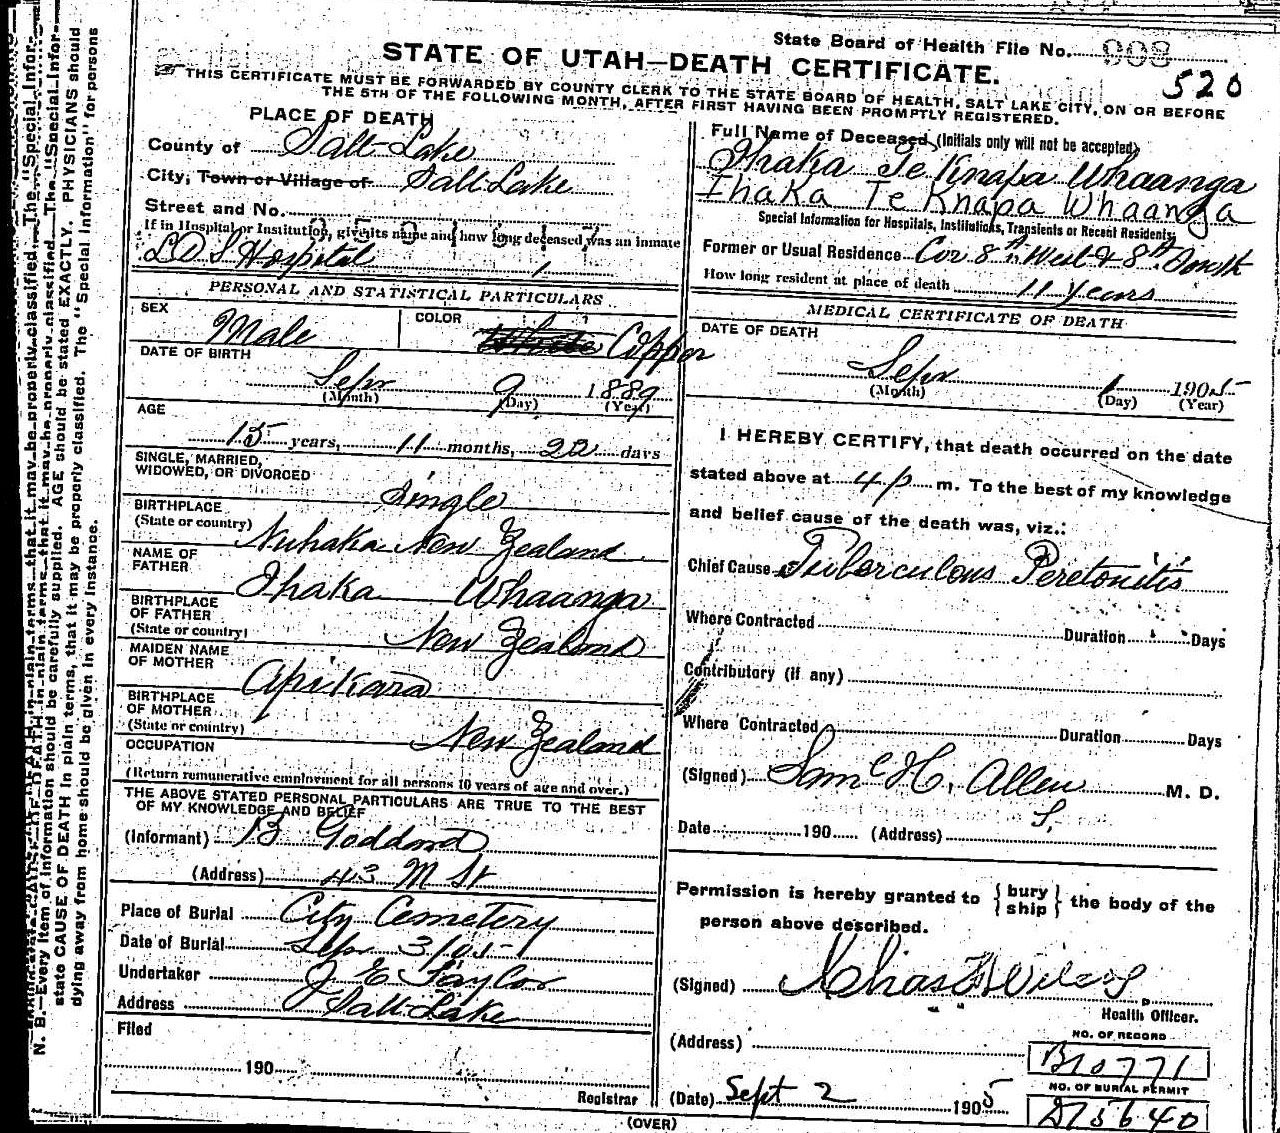 State Board of Health File No. 908
520
STATE OF UTAH—DEATH CERTIFICATE.
THIS CERTIFICATE MUST BE FORWARDED BY COUNTY CLERK TO THE STATE BOARD OF HEALTH, SALT LAKE CITY, ON OR BEFORE
THE 5TH OF THE FOLLOWING MONTH, AFTER FIRST HAVING BEEN PROMPTLY REGISTERED.
PLACE OF DEATH
County of Salt Lake
City, Town or Village of Salt Lake
Street and No.
If in Hospital or Institution, give its name and how long deceased was an inmate
L D S Hospital
PERSONAL AND STATISTICAL PARTICULARS
SEX Male
COLOR White Copper
DATE OF BIRTH
Sepr 9 1889
(Month) (Day) (Year)
AGE
15 years, 11 months, 22 days
SINGLE, MARRIED,
WIDOWED, OR DIVORCED
Single
BIRTHPLACE
(State or country) Nuhaka New Zealand
NAME OF
FATHER Ihaka Whaanga
BIRTHPLACE
OF FATHER
(State or country) New Zealand
MAIDEN NAME
OF MOTHER Apikara
BIRTHPLACE
OF MOTHER
(State or country) New Zealand
OCCUPATION
(Return remunerative employment for all persons 10 years of age and over.)
THE ABOVE STATED PERSONAL PARTICULARS ARE TRUE TO THE BEST
OF MY KNOWLEDGE AND BELIEF
(Informant) B Goddard
(Address) 43 M St
Place of Burial City Cemetery
Date of Burial Sepr 3/05
Undertaker J E Taylor
Address Salt Lake
Filed
190
Registrar
Full Name of Deceased, (Initials only will not be accepted)
Ihaka Te Knapa Whaanga
Ihaka Te Knapa Whaanga
Special Information for Hospitals, Institutions, Transients or Recent Residents:
Former or Usual Residence Cor 8th West & 8th South
How long resident at place of death 11 Years
MEDICAL CERTIFICATE OF DEATH
DATE OF DEATH
Sepr 1 1905
(Month) (Day) (Year)
I HEREBY CERTIFY, that death occurred on the date
stated above at 4 p m. To the best of my knowledge
and belief cause of the death was, viz.:
Chief Cause Tuberculous Peretonitis
Where Contracted Duration Days
Contributory (if any)
Where Contracted Duration Days
(Signed) Saml H. Allen M. D.
Date 190 (Address) S.
Permission is hereby granted to { bury ship } the body of the
person above described.
(Signed) Chas
Health Officer.
(Address)
NO. OF RECORD
B10771
NO. OF BURIAL PERMIT
D15640
(Date) Sept 2 1905
(OVER)
N. B.—Every item of information should be carefully supplied. AGE should be stated EXACTLY. PHYSICIANS should
state CAUSE OF DEATH in plain terms, that it may be properly classified. The "Special Information" for persons
dying away from home should be given in every instance.